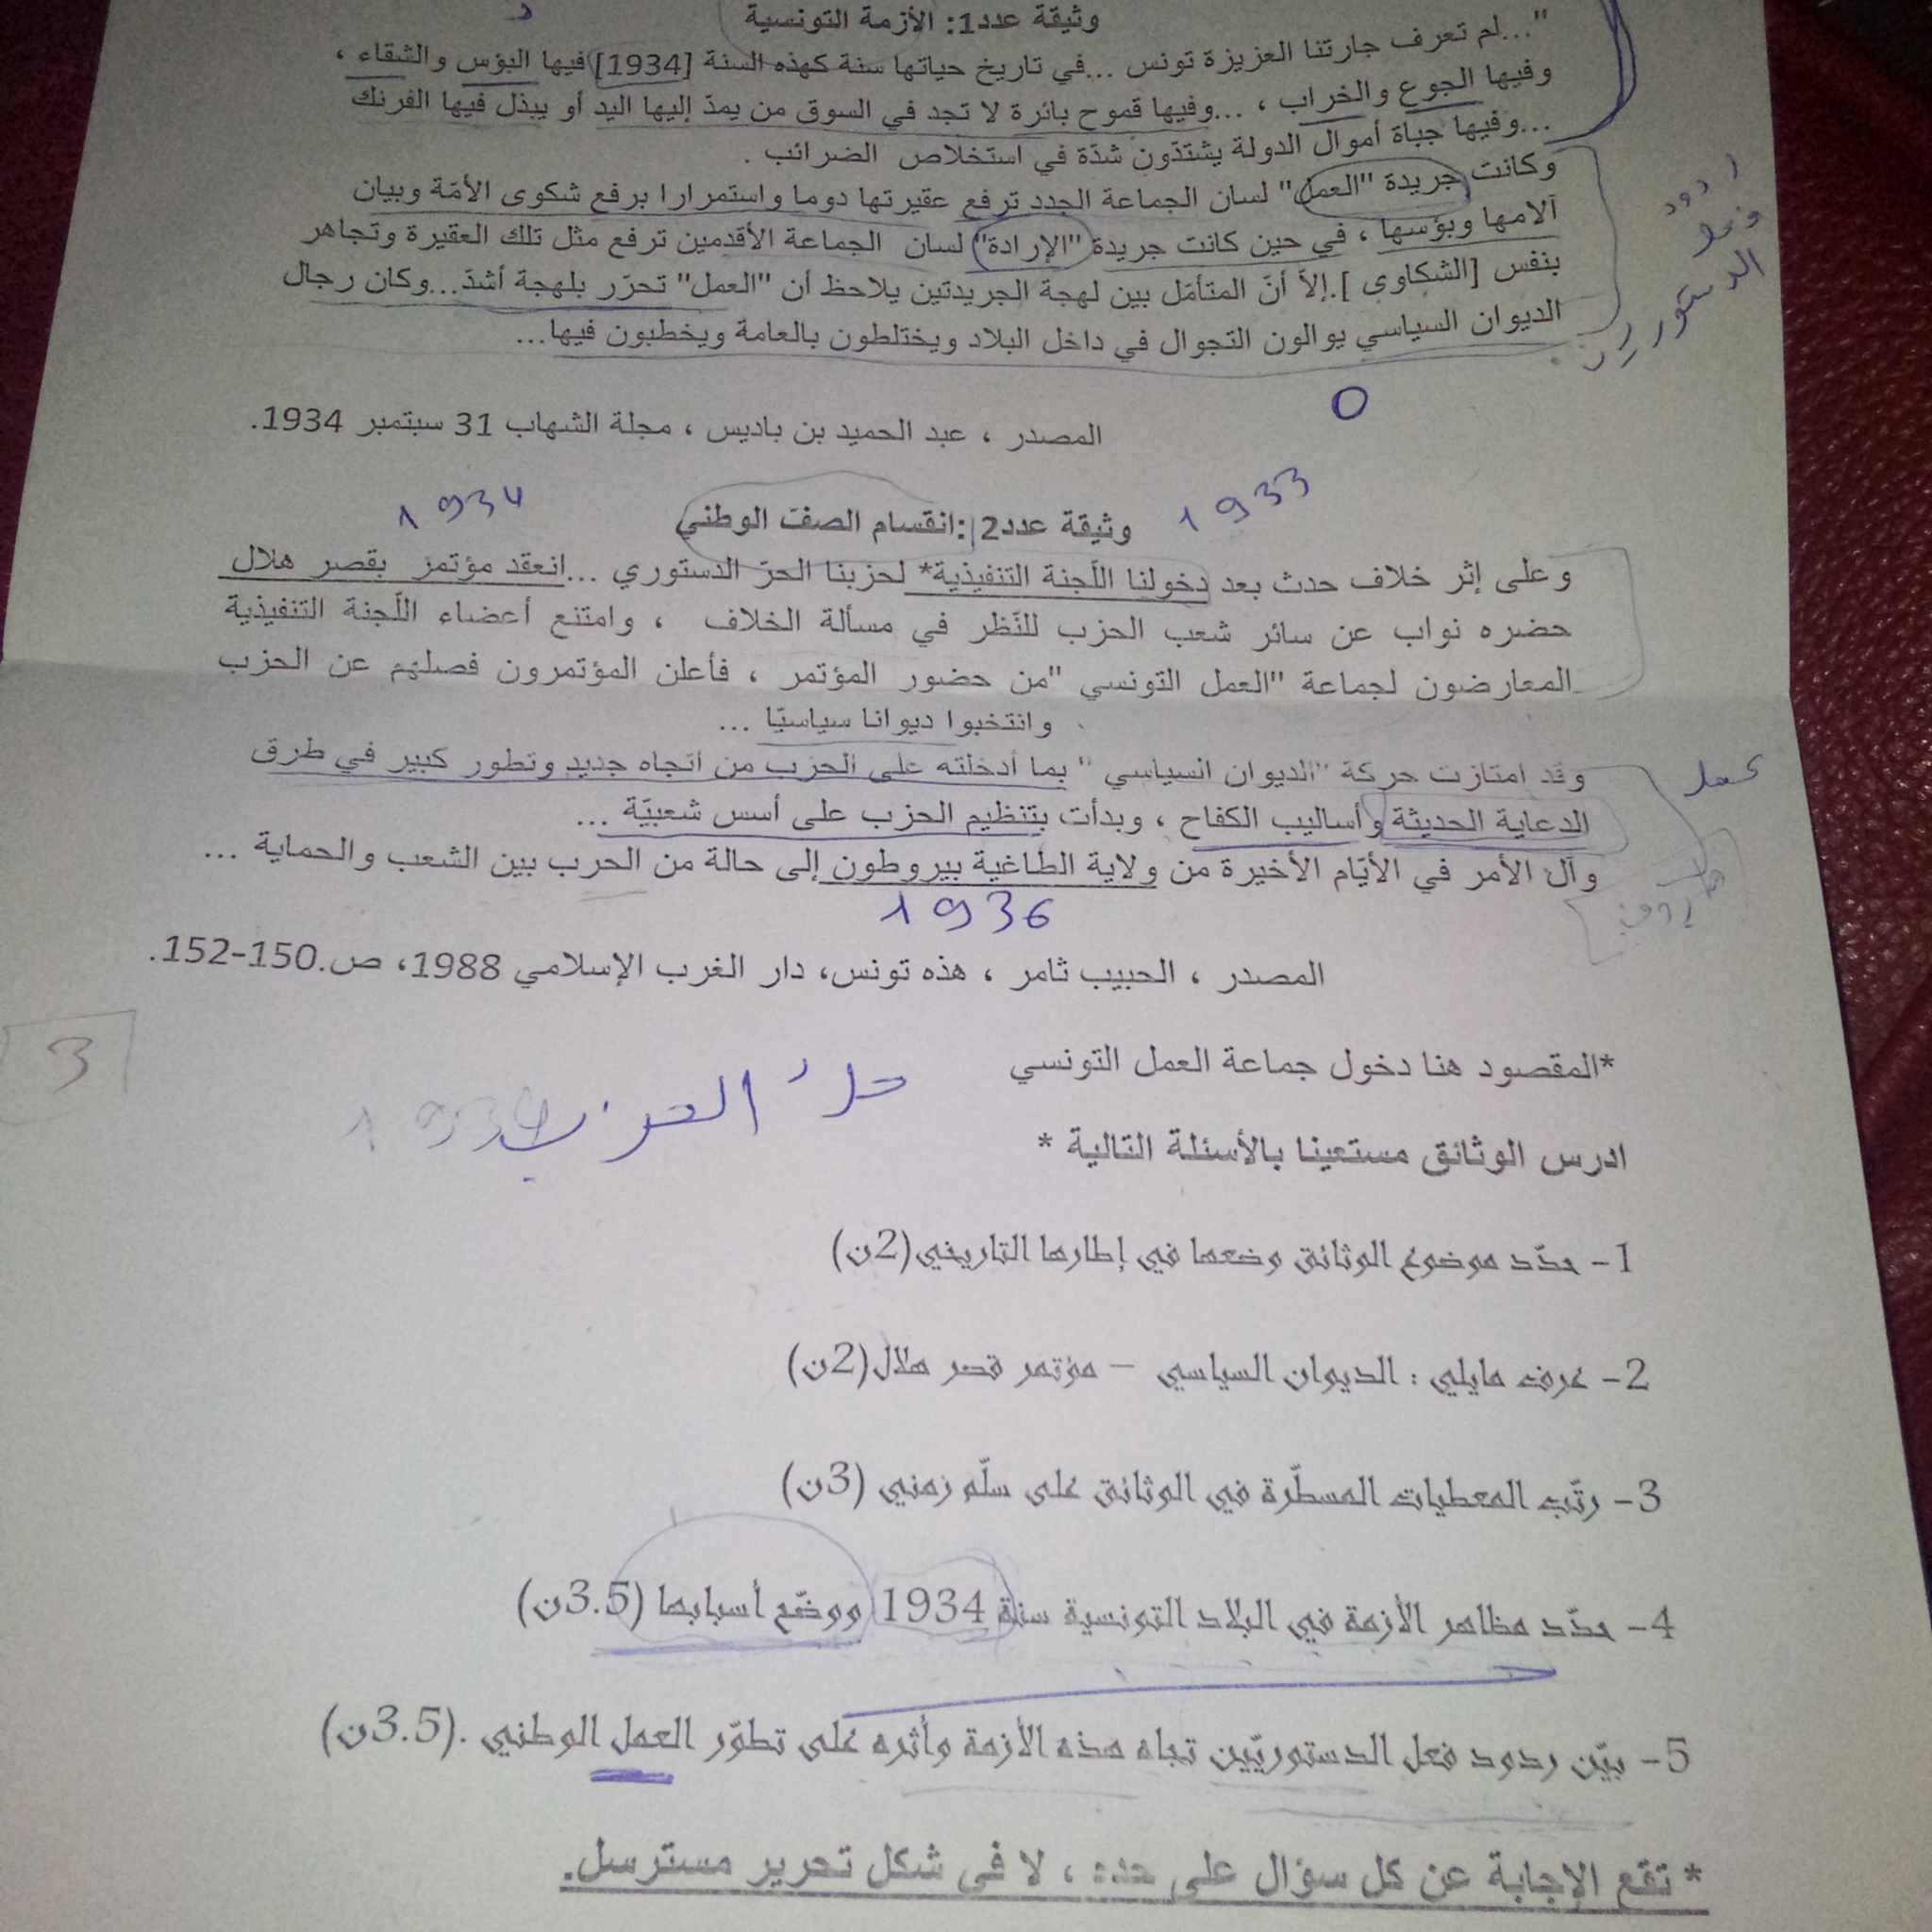 وثيقة عدد1: الأزمة التونسية
"...لم تعرف جارتنا العزيزة تونس ...في تاريخ حياتها سنة كهذه السنة [1934] فيها البؤس والشقاء ،
وفيها الجوع والخراب ، ...وفيها قموح بائرة لا تجد في السوق من يمدّ إليها اليد أو يبذل فيها الفرنك
...وفيها جباة أموال الدولة يشتدّون شدّة في استخلاص الضرائب .
وكانت جريدة "العمل" لسان الجماعة الجدد ترفع عقيرتها دوما واستمرارا برفع شكوى الأمّة وبيان
آلامها وبؤسها ، في حين كانت جريدة "الإرادة" لسان الجماعة الأقدمين ترفع مثل تلك العقيرة وتجاهر
بنفس [الشكاوى ].إلاّ أنّ المتأمّل بين لهجة الجريدتين يلاحظ أن "العمل" تحرّر بلهجة أشدّ...وكان رجال
الديوان السياسي يوالون التجوال في داخل البلاد ويختلطون بالعامة ويخطبون فيها...
ردود
فعل
الدستوريين
المصدر ، عبد الحميد بن باديس ، مجلة الشهاب 31 سبتمبر 1934.
1934
1933
وثيقة عدد2 :انقسام الصفّ الوطني
وعلى إثر خلاف حدث بعد دخولنا اللّجنة التنفيذية* لحزبنا الحرّ الدستوري ...انعقد مؤتمر بقصر هلال
حضره نواب عن سائر شعب الحزب للنّظر في مسألة الخلاف ، وامتنع أعضاء اللّجنة التنفيذية
المعارضون لجماعة "العمل التونسي "من حضور المؤتمر ، فأعلن المؤتمرون فصلهم عن الحزب
وانتخبوا ديوانا سياسيّا ...
وقد امتازت حركة "الديوان السياسي " بما أدخلته على الحزب من اتجاه جديد وتطور كبير في طرق
الدعاية الحديثة وأساليب الكفاح ، وبدأت بتنظيم الحزب على أسس شعبيّة ...
وآل الأمر في الأيّام الأخيرة من ولاية الطاغية بيروطون إلى حالة من الحرب بين الشعب والحماية ...
1936
المصدر ، الحبيب ثامر ، هذه تونس، دار الغرب الإسلامي 1988، ص.150-152.
3
*المقصود هنا دخول جماعة العمل التونسي
حل الحزب
ادرس الوثائق مستعينا بالأسئلة التالية *
1- حدّد موضوع الوثائق وضعها في إطارها التاريخي(2ن)
2- عرف مايلي : الديوان السياسي – مؤتمر قصر هلال(2ن)
3- رتّب المعطيات المسطّرة في الوثائق على سلّم زمني (3ن)
4- حدّد مظاهر الأزمة في البلاد التونسية سنة 1934 ووضّح أسبابها (3.5ن)
5- بيّن ردود فعل الدستوريّين تجاه هذه الأزمة وأثره على تطوّر العمل الوطني .(3.5ن)
* تقع الإجابة عن كل سؤال على حده ، لا في شكل تحرير مسترسل.